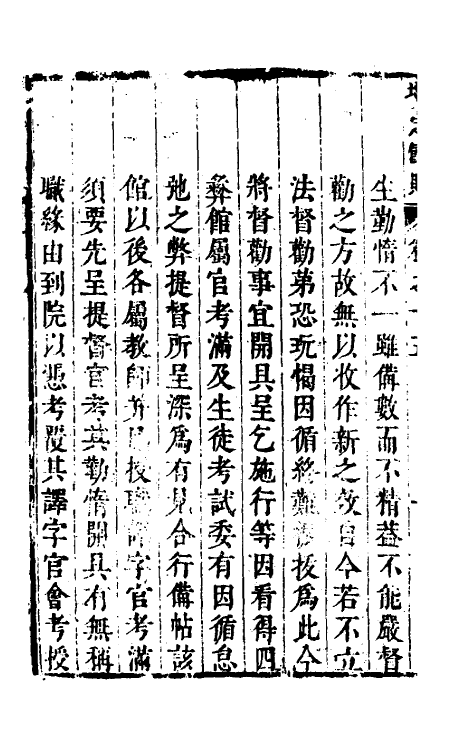 生勤惰不一雖備數而不精益不能嚴督
勸之方故無以收作新之效自今若不立
法督勸第恐玩愒因循終難
拔為此今
將督勸事宜開具呈乞施行等因看得四
彝館屬官考滿及生徒考試委有因循怠
弛之弊提督所呈深為有見合行備帖該
館以後各屬教師并已授職譯字官考滿
須要先呈提督官考其勤惰開具有無稱
職緣由到院以憑考覆其譯字官會考授